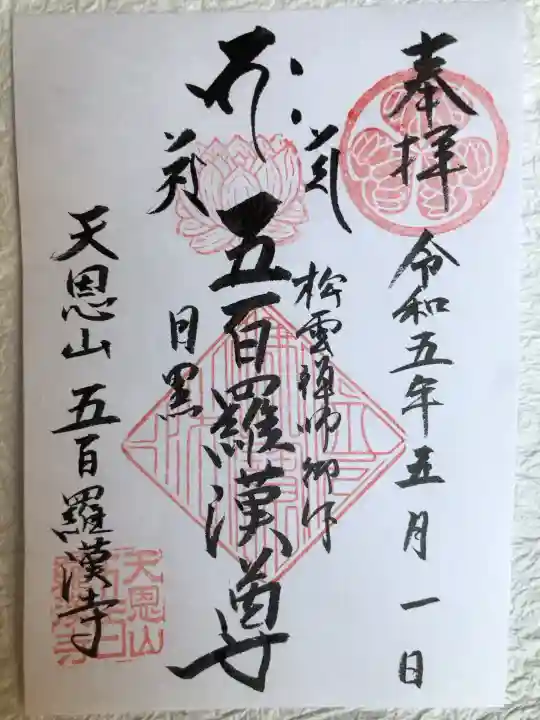 奉拝
令和五年五月一日
松雲禅師御作
五百羅漢尊
目黒
天恩山 五百羅漢寺
天恩山